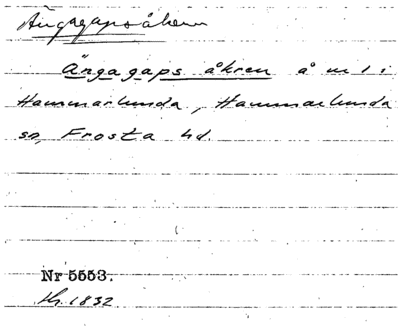 Ängagapsåkern
Ängagaps åkren å nr 1 i
Hammarlunda, Hammarlunda
sn, Frosta hd.
Nr 5553.
1832